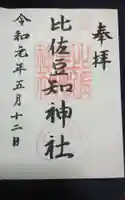 奉拝
比佐豆知神社
令和元年五月十二日